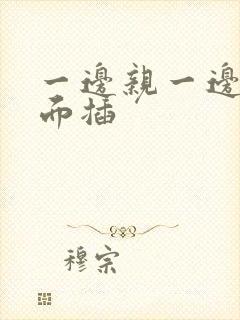 一邊親一邊
而插
穆宗